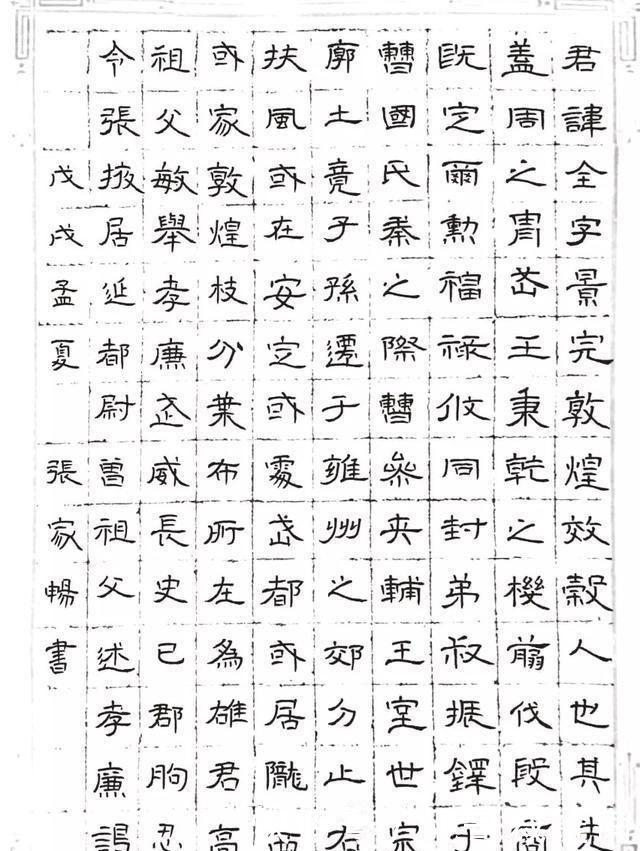 君諱全字景完敦煌效穀人也其先
蓋周之胄武王秉乾之機翦伐殷商
既定爾勳福祿攸同封弟叔振鐸于
曹國氏秦之際曹參夾輔王室世宗
廓土竟子孫遷于雍州之郊分止右
扶風或在安定或處武都或居隴西
或家敦煌枝分葉布所在為雄君高
祖父敏舉孝廉武威長史巴郡朐忍
令張掖居延都尉曾祖父述孝廉謁
戊戌孟夏 張家暢書